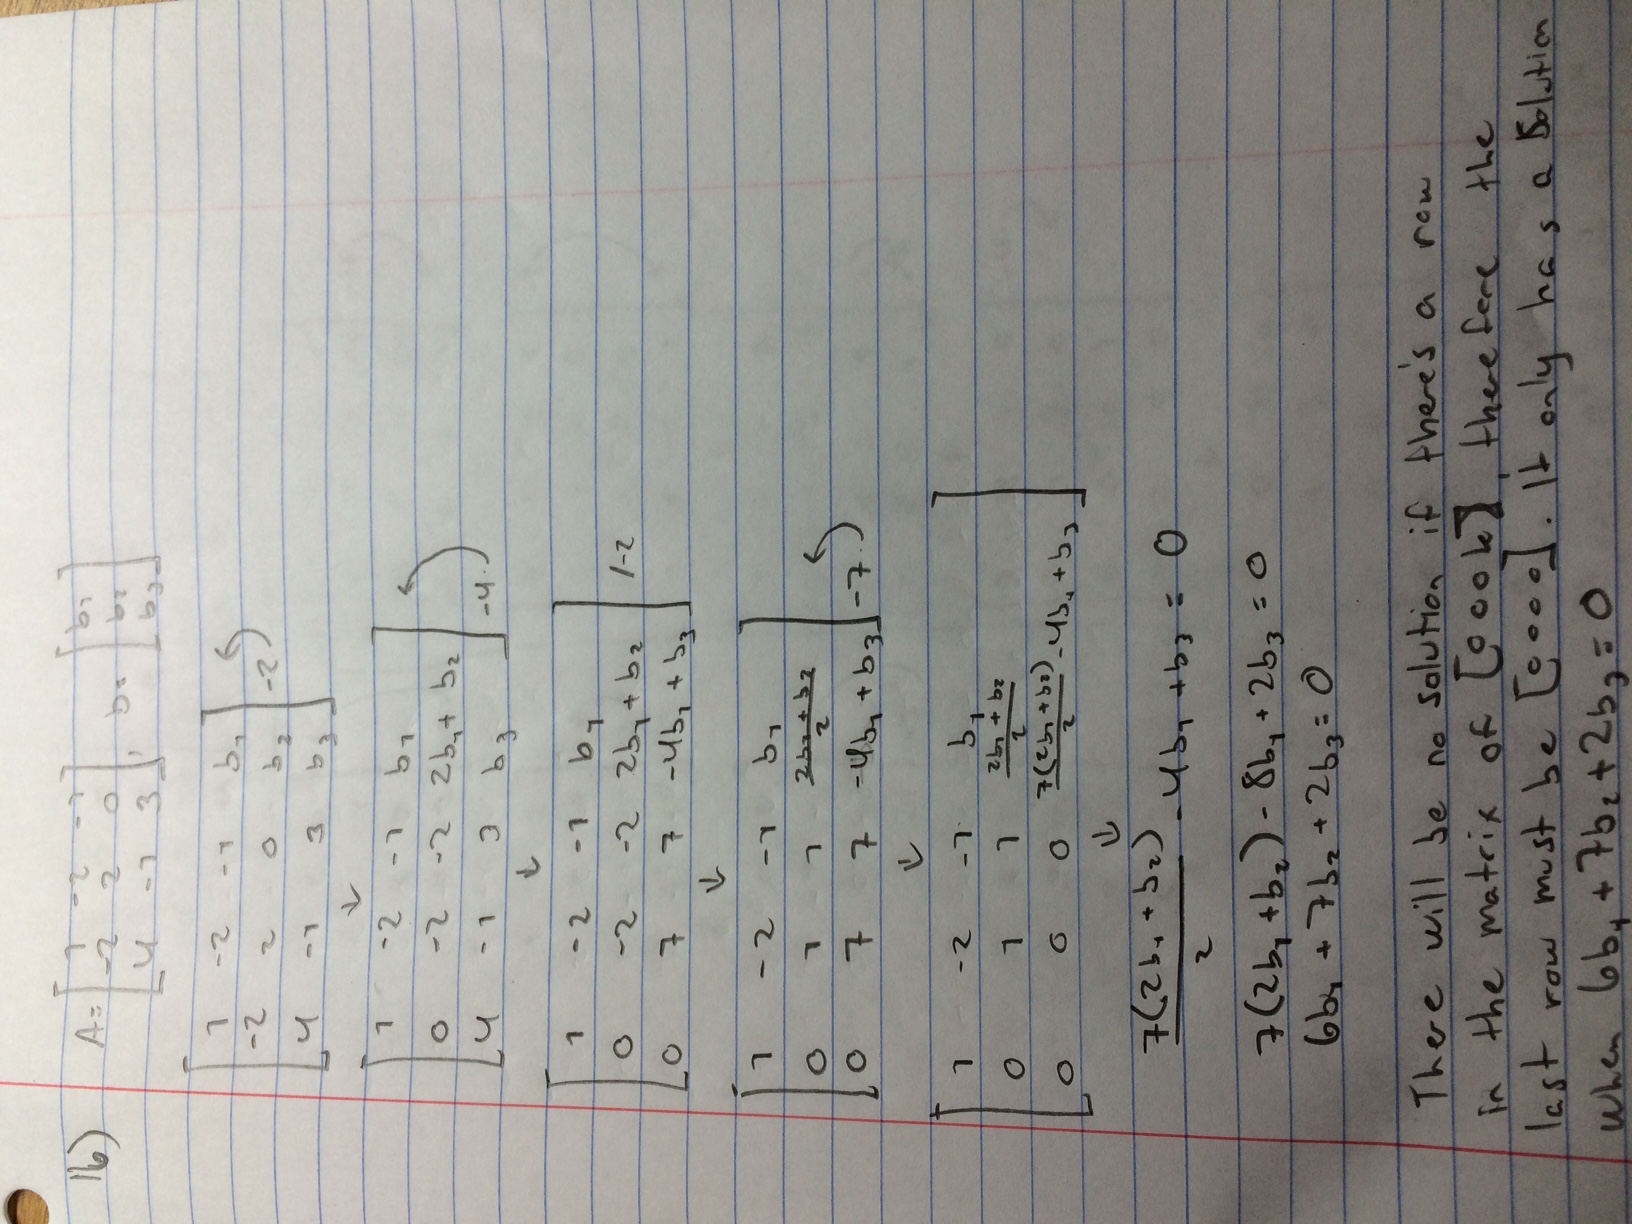 16) A= [1 -2 -1; -2 2 0; 4 -1 3], b= [b₁; b₂; b₃]
1 -2 -1 b₁
-2 2 0 b₂ -2
4 -1 3 b₃
↓
1 -2 -1 b₁
0 -2 -2 2b₁+ b₂
4 -1 3 b₃ -4
↓
1 -2 -1 b₁
0 -2 -2 2b₁ + b₂ /-2
0 7 7 -4b₁ + b₃
↓
1 -2 -1 b₁
0 1 1 (2b₁ + b₂)/2
0 7 7 -4b₁ + b₃ -7
↓
1 -2 -1 b₁
0 1 1 (2b₁ + b₂)/2
0 0 0 7(2b₁ + b₂)/2 -4b₁ + b₃
↓
7(2b₁ + b₂)/2 -4b₁ + b₃ = 0
7(2b₁ + b₂) - 8b₁ + 2b₃ = 0
6b₁ + 7b₂ + 2b₃ = 0
There will be no solution if there's a row
in the matrix of [0 0 0 k], therefore the
last row must be [0 0 0 0]. It only has a Solution
when 6b₁ + 7b₂ + 2b₃ = 0